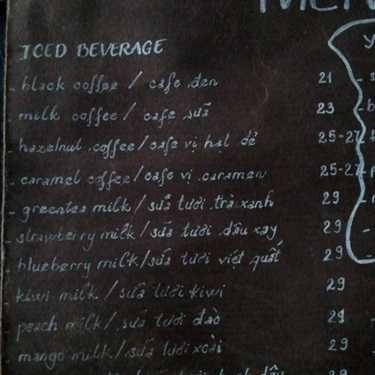 MEN
ICED BEVERAGE
- black coffee / cafe đen 21
- milk coffee / cafe sữa 23
- hazelnut coffee/cafe vị hạt dẻ 25-27
- caramel coffee/cafe vị caramen 25-27
- greentea milk/sữa tươi trà xanh 29
- strawberry milk/sữa tươi dâu xay 29
- blueberry milk/sữa tươi việt quất 29
- kiwi milk / sữa tươi kiwi 29
- peach milk / sữa tươi đào 29
- mango milk/sữa tươi xoài 29